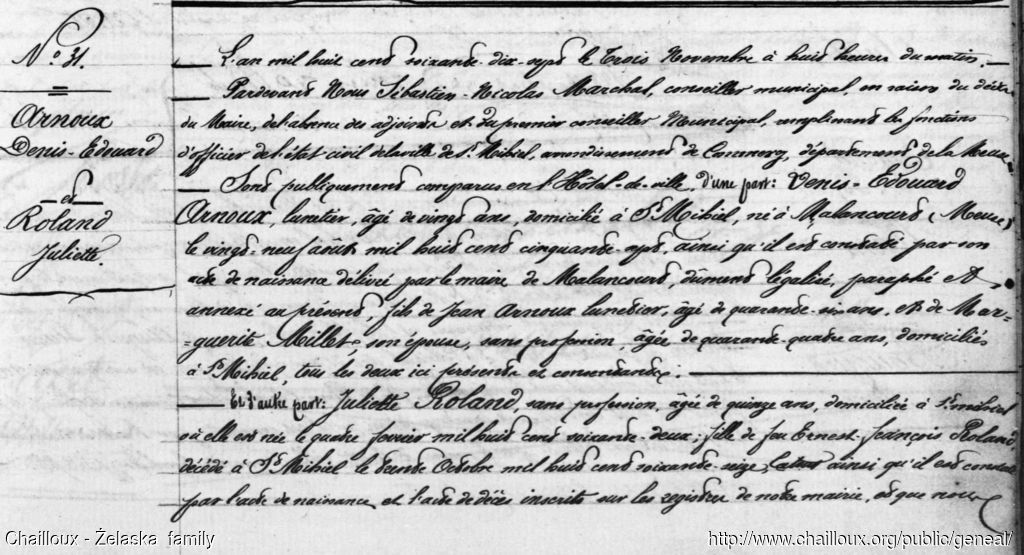 N.° 31.
Arnoux
Denis-Edouard
et
Roland
Juliette
L'an mil huit cent soixante-dix-sept le Trois Novembre à huit heures du matin.
Pardevant Nous Sébastien-Nicolas Marchal, conseiller municipal, en raison du décès
du Maire, de l'absence des adjoints et du premier conseiller Municipal, remplissant les fonctions
d'officier de l'état civil de la ville de St. Mihiel, arrondissement de Commercy, département de la Meuse.
Sont publiquement comparus en l'Hôtel-de-ville, d'une part: Denis-Edouard
Arnoux, lunetier, âgé de vingt ans, domicilié à St Mihiel, né à Malancourt (Meuse)
le vingt-neuf août mil huit cent cinquante-sept, ainsi qu'il est constaté par son
acte de naissance délivré par le maire de Malancourt, dûment légalisé, paraphé et
annexé au présent, fils de Jean Arnoux lunetier, âgé de quarante-six ans, et de Mar-
-guerite Millet, son épouse, sans profession, âgée de quarante-quatre ans, domiciliés
à St Mihiel, tous les deux ici présents et consentants.
Et d'autre part: Juliette Roland, sans profession, âgée de quinze ans, domiciliée à St. Mihiel
où elle est née le quatre février mil huit cent soixante-deux; fille de feu Ernest-François Roland
décédé à St Mihiel le trente Octobre mil huit cent soixante-seize, ainsi qu'il est constaté
par l'acte de naissance et l'acte de décès inscrits sur les registres de notre mairie, et que nous
Chailloux - Żelaska family
http://www.chailloux.org/public/geneal/